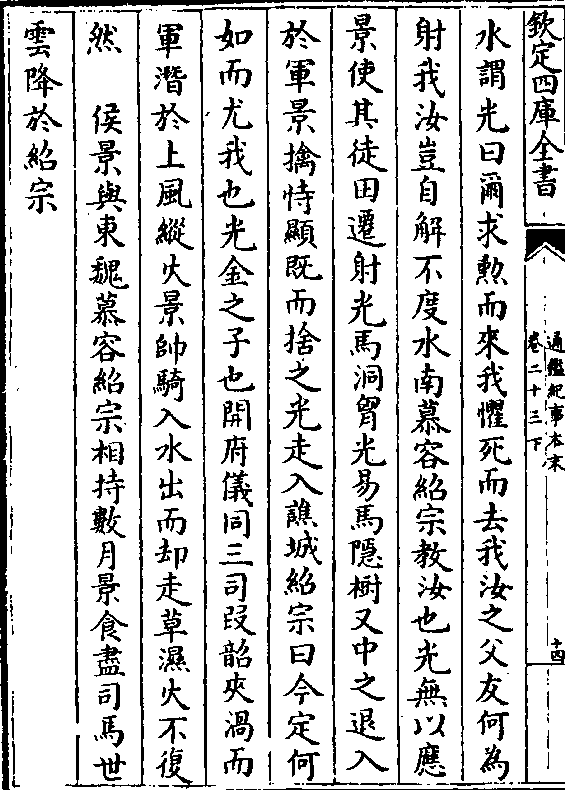 欽定四庫全書
通鑑紀事本末
卷二十三下
十四
水謂光曰爾求勲而來我懼死而去我汝之父友何為
射我汝豈自解不度水南慕容紹宗教汝也光無以應
景使其徒田遷射光馬洞胷光易馬隱樹又中之退入
於軍景擒恃顯既而捨之光走入譙城紹宗曰今定何
如而尤我也光金之子也開府儀同三司段韶夾渦而
軍潛於上風縱火景帥騎入水出而却走草濕火不復
然　侯景與東魏慕容紹宗相持數月景食盡司馬世
雲降於紹宗